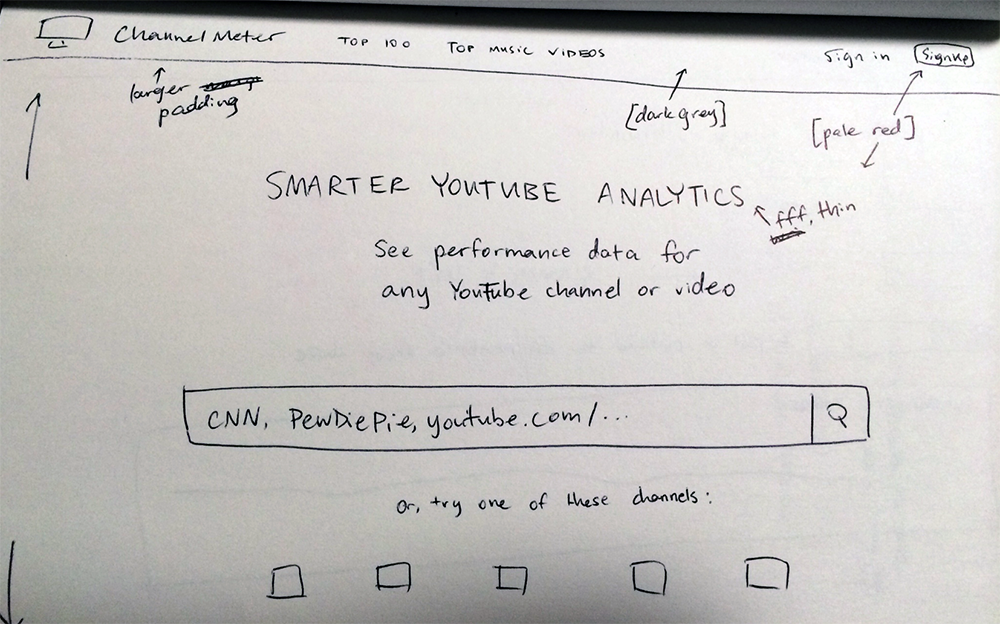 Channel Meter TOP 100 TOP MUSIC VIDEOS Sign in Signup
larger
padding
[dark grey]
[pale red]
SMARTER YOUTUBE ANALYTICS
fff, thin
See performance data for
any YouTube channel or video
CNN, PewDiePie, youtube.com/...
Or, try one of these channels: